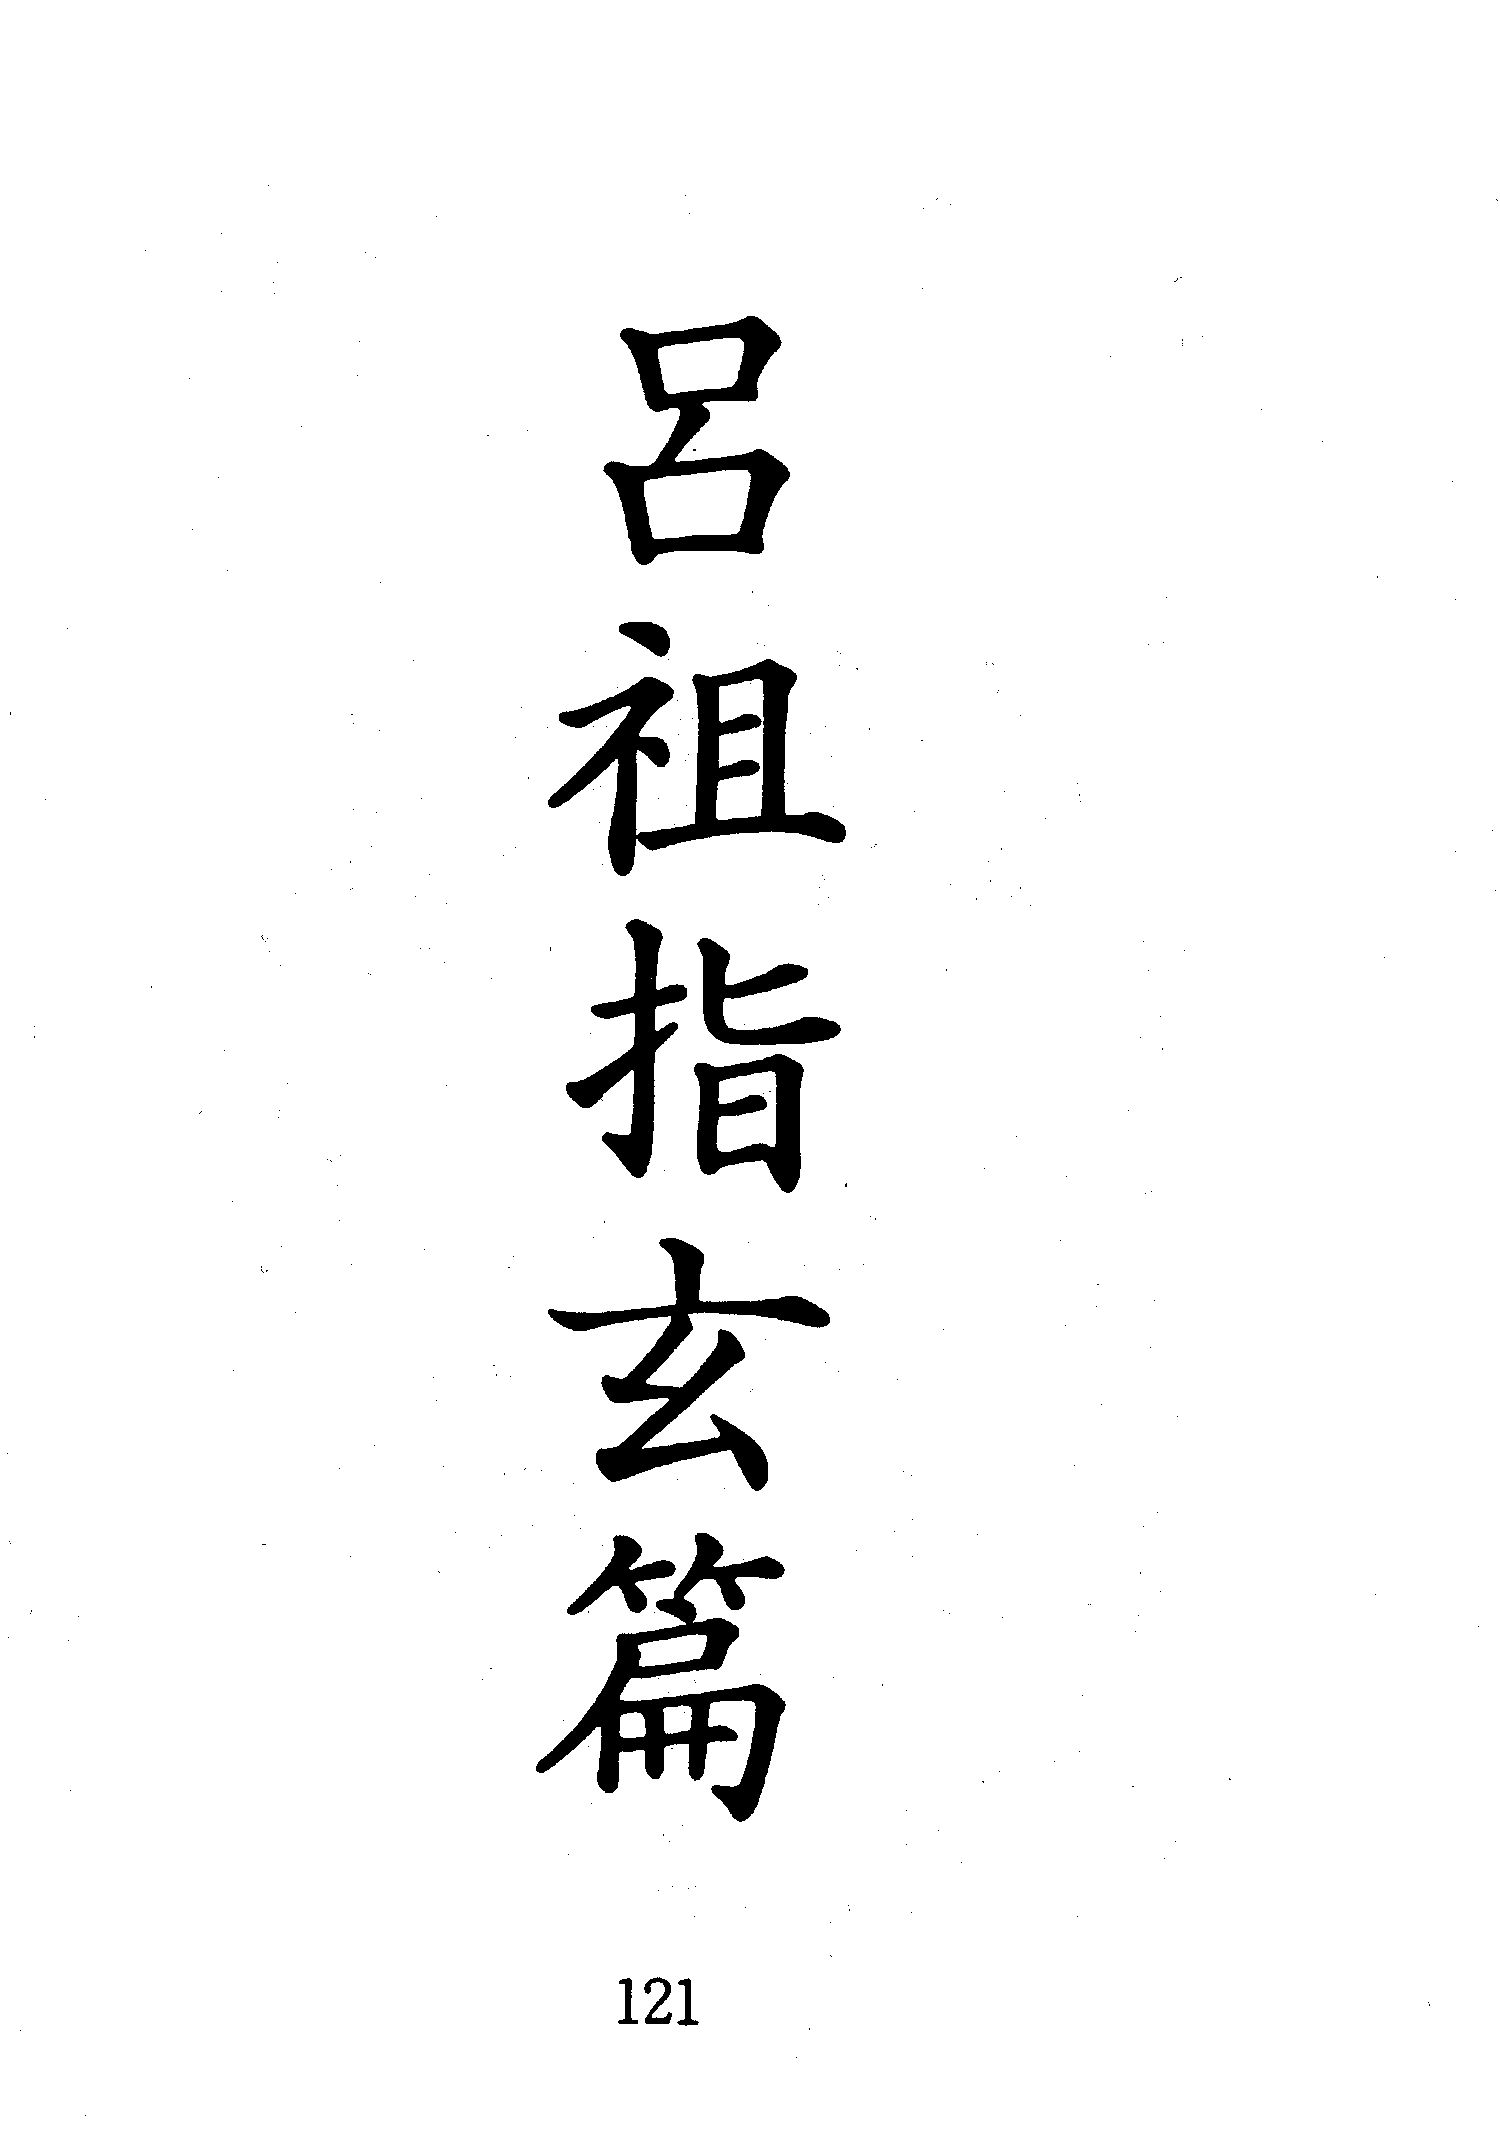 呂祖指玄篇
121